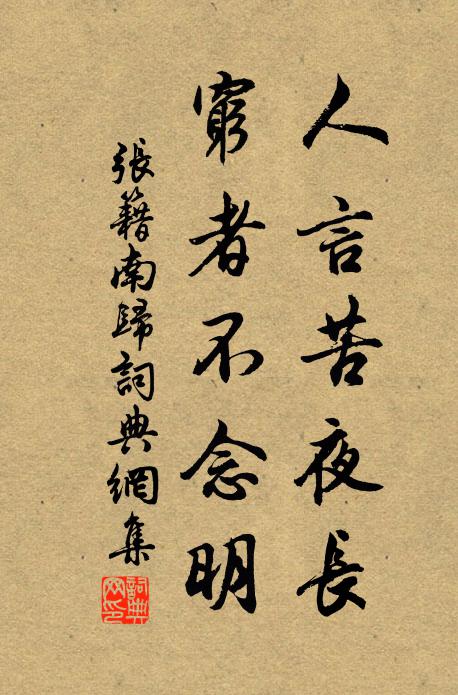 人言苦夜長
窮者不念明
張籍南歸詞典網集
詞典
网印